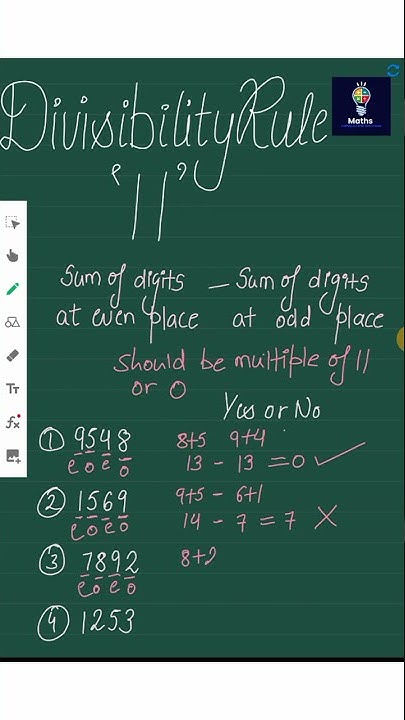 Maths
Divisibility Rule
'11'
Sum of digits – Sum of digits
at even place at odd place
Should be multiple of 11
or 0
Yes or No
① 9548 8+5 9+4
e o e o 13 - 13 = 0 ✓
② 1569 9+5 - 6+1
e o e o 14 - 7 = 7 ✗
③ 7892 8+2
e o e o
④ 1253
Tт
fx